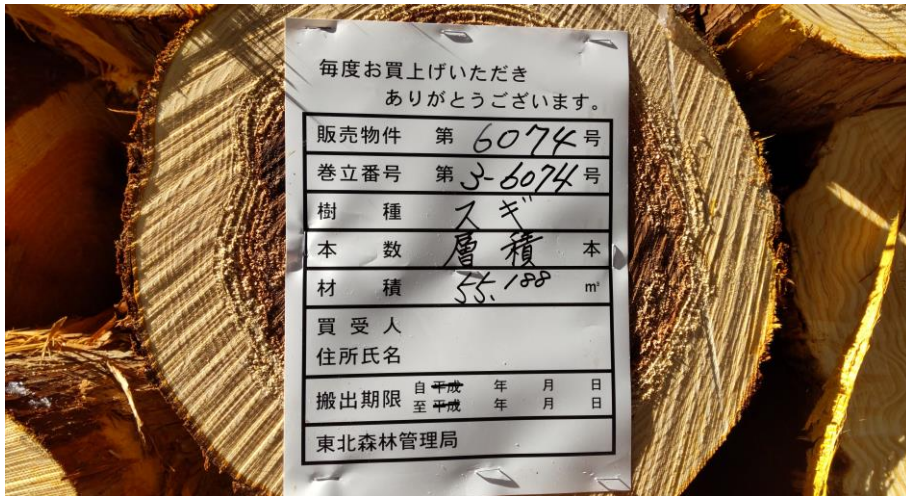 毎度お買上げいただき
ありがとうございます。
販売物件 第 6074 号
巻立番号 第 3-6074 号
樹 種 スギ
本 数 層積 本
材 積 55.188 m³
買受人
住所氏名
搬出期限 自 平成 年 月 日
至 平成 年 月 日
東北森林管理局